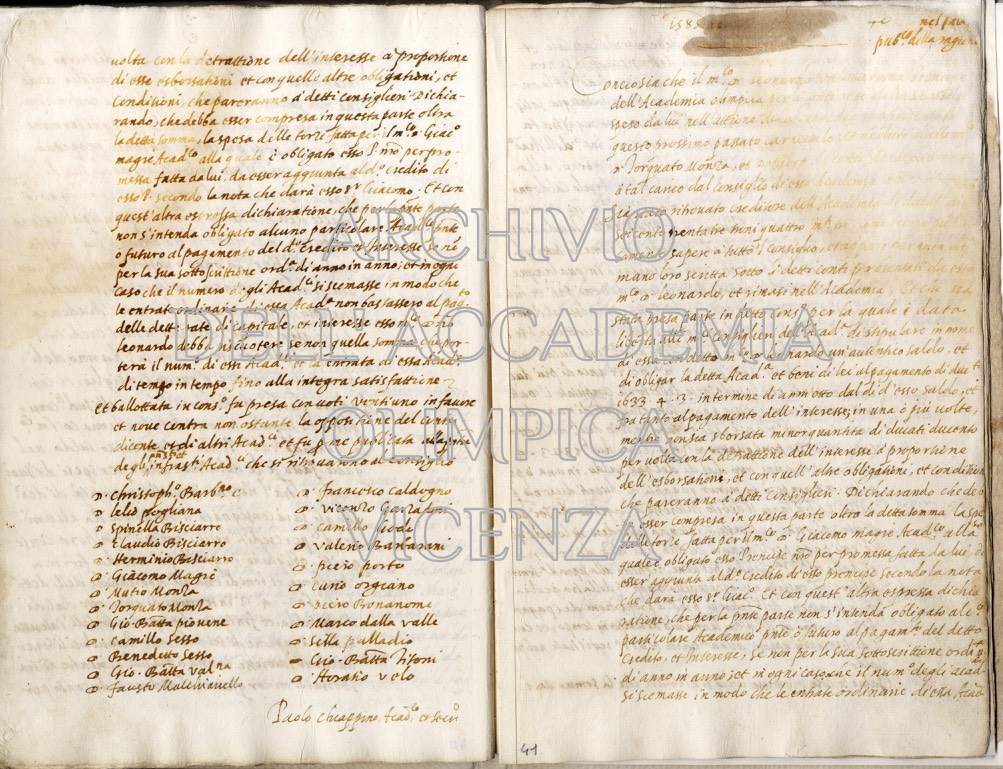 volta con la detrattione dell'interesse à proportione
di esse esborsationi et con quelle altre obligationi, et
Conditioni, che pareranno à detti Consiglieri Dichia-
rando, che debba esser compresa in questa parte oltra
la detta somma, la spesa delle torze fatta per il m.co Giac.o
magrè Acad.co alla quale è obligato esso P. nro per pro-
messa fatta da lui, da esser aggiunta al d.o Credito di
esso P. secondo la nota che darà esso Sr Giacomo. Et con
quest'altra espressa dichiaratione, che per la pnte parte
non s'intenda obligato alcuno particolare Acad.co pnte
o futuro al pagamento del d.o Credito et Interesse se nō
per la sua sottoscrittione ord.a di anno in anno; et in ogni
Caso che il numero degli Acad.ci si scemasse in modo che
le entrate ordinarie di essa Acad.a non bastassero al pag.to
delle dette rate di capitale, et interesse esso m.co
leonardo debba riscoter se non quella somma che por-
terà il num.o di essi Acad.ci et la entrata di essa Acad.a
di tempo in tempo fino alla integra satisfattione
et ballottata in cons.o fu presa con voti vent'uno in favore
et nove contra non ostante la oppositione del Contra
dicente et di altri Acad.ci et fu p me publicata alla pñtia
degl'infrasti Acad.ci che si ritrovarono al Consiglio
D. Christoph.o Barb.no C.
D. Lelio Pogliana
D. Spinella Bisciarro
D. Claudio Bisciarro
D. Herminio Bisciarro
D. Giacomo Magrè
D. Mutio Monza
D. Torquato Monza
D. Gio. Batta piovene
D. Camillo Sesso
D. Benedetto Sesso
D. Gio. Batta Valna
D. Fausto
D. Francesco Caldogno
D. Vicenzo Garzadori
D. Camillo
D. Valerio Barbarani
D. piero porto
D. Curio orgiano
D. Piero Bonanome
D. Marco dalla valle
D. Silla palladio
D. Gio. Batta Titoni
D. Horatio Velo
Paolo Chiappino Acad.co et
1585
nel pala
pub.co della ragion
Conciosia che il m.co D. leonardo
dell'Academia olimpica
speso da lui nell'ultima
questo prossimo passato
D. Torquato Monza, et
à tal carico dal Consiglio di essa
sia stato ritrovato creditore dell'Academia di
sei cento trenta tre troni quattro
sapere à tutto il Consiglio,
mano loro scritta sotto i detti conti presentati da esso
m.co D. leonardo, et rimasi nell'Academia et che sia
stata presa parte in detto Cons.o per la quale è data
libertà alli m.ci Consiglieri dell'Acad.a di stipulare in nome
di essa col detto m.co D. leonardo un'autentico saldo, et
di obligar la detta Acad.a et beni di lei al pagamento di duc.ti
1633 . 4 . 3 . in termine di anni otto dal dì d'esso saldo, et
fra tanto al pagamento dell'interesse, in una ò più volte,
mentre non sia sborsata minor quantità di ducati ducento
per volta con la detrattione dell'interesse à proportione
dell'esborsatione, et con quell'altre obligationi, et condition
che pareranno à detti Consiglieri. Dichiarando che deb
ba esser compresa in questa parte oltra la detta somma la spesa
delle torze fatta per il m.co D. Giacomo magrè Acad.co alla
quale è obligato esso Principe nro per promessa fatta da lui, da
esser aggiunta al d.o Credito di esso principe secondo la nota
che darà esso Sr. Giac.o Et con quest'altra espressa dichia
ratione, che per la pnte parte non s'intenda obligato alc.o
particolare Academico pnte ò futuro al pagam.to del detto
Credito, et Interesse, se non per la sua sottoscrittione ordi
di anno in anno; et in ogni caso, che il num.o degli acad
si scemasse in modo che le entrate ordinarie di essa Acad
41
ARCHIVIO
DELL'ACCADEMIA
OLIMPICA
VICENZA